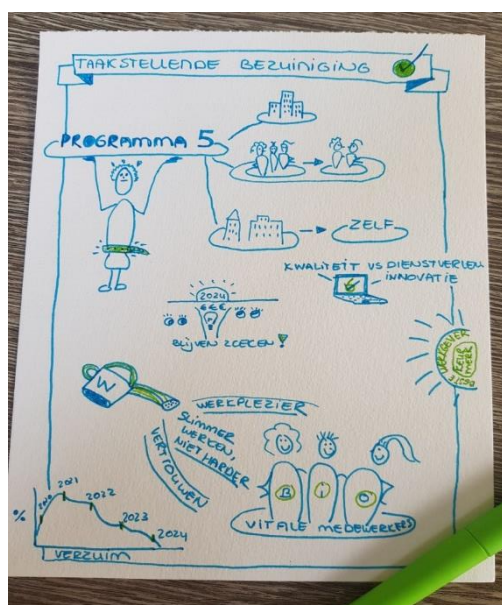 TAAKSTELLENDE BEZUINIGING
PROGRAMMA 5
ZELF
KWALITEIT VS DIENSTVERLEN
INNOVATIE
2024
€€€
BLIJVEN ZOEKEN!
WERKGEVER
KEUR
MEERK
W
WERKPLEZIER
SLIMMER
WERKEN,
NIET HARDER
VERTROUWEN
B I O
VITALE MEDEWERKERS
%
2020
2021
2022
2023
2024
VERZUIM